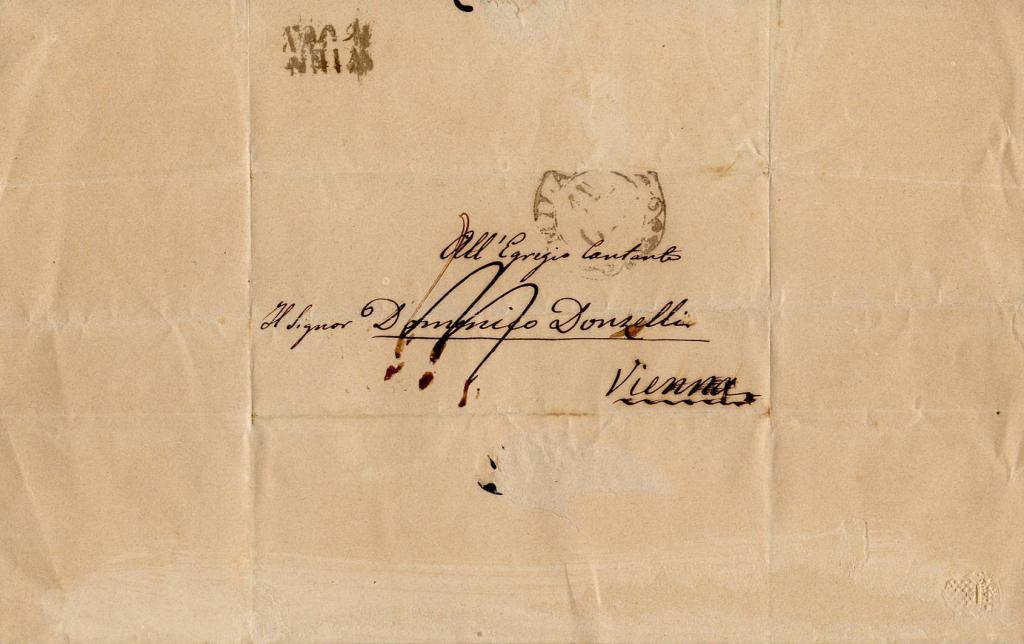 WIEN
MILA
All'Egregio Cantante
Il Signor Domenico Donzelli
Vienna